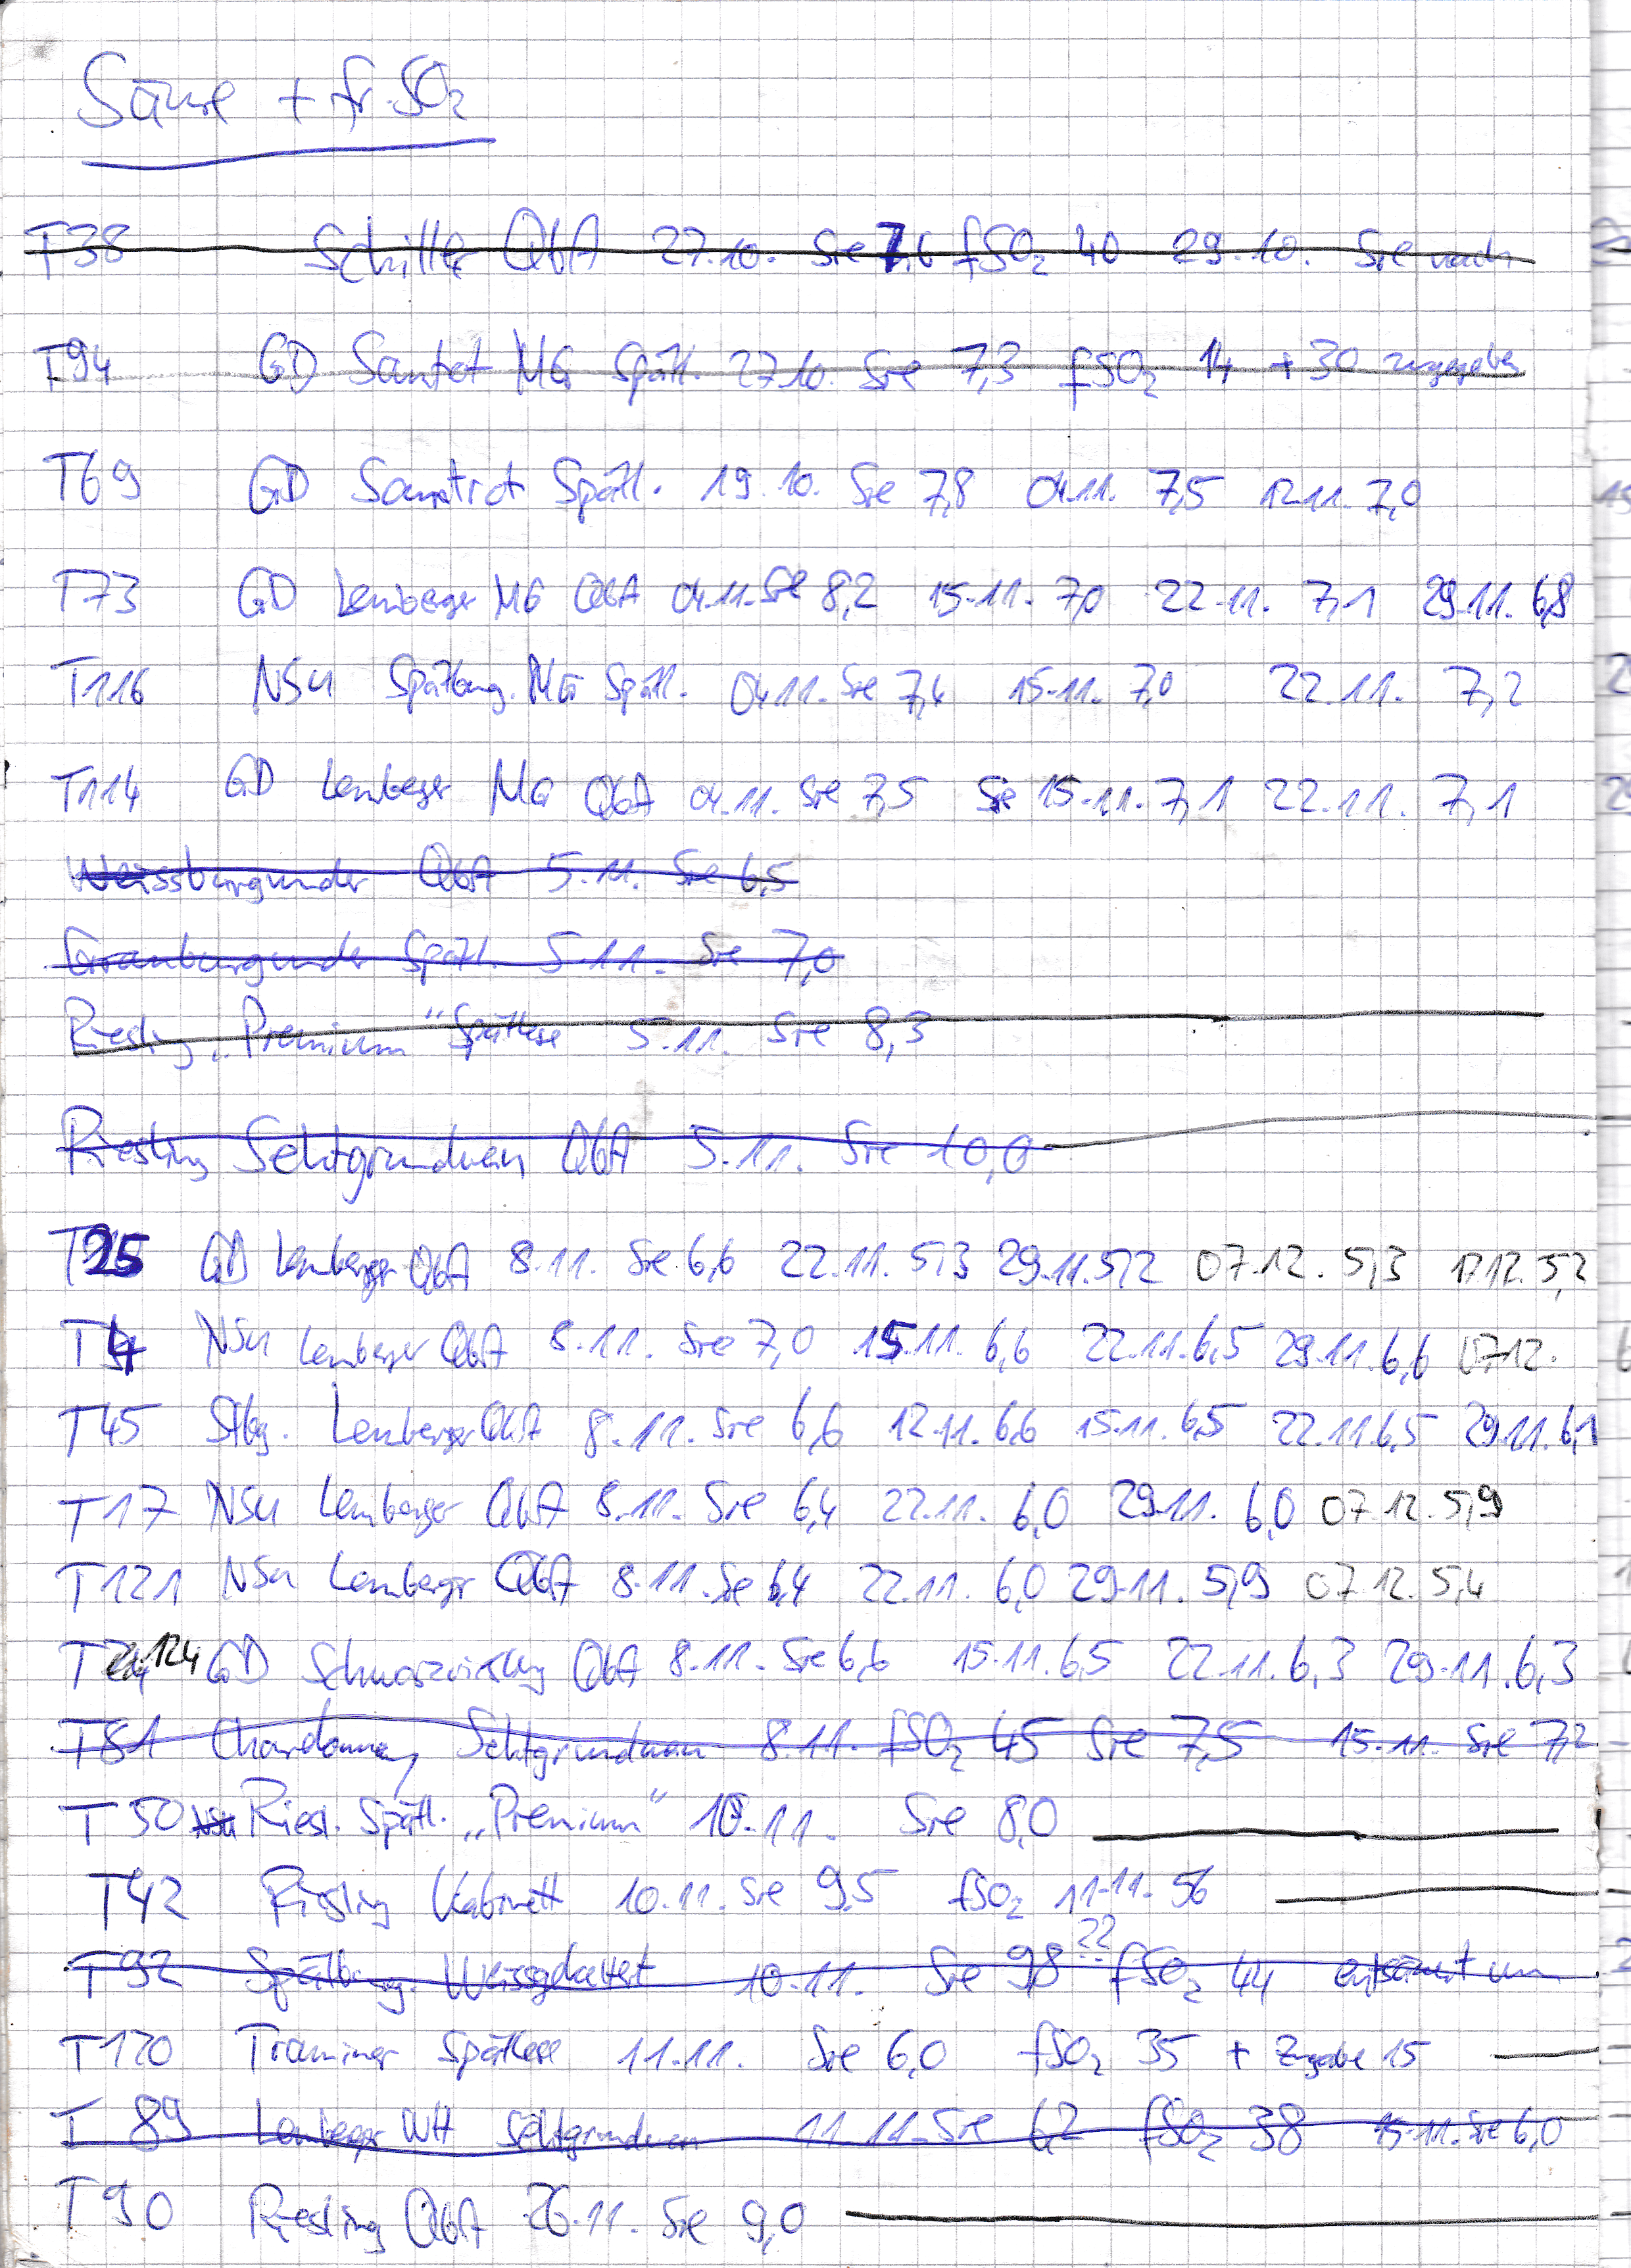 Säure + fr. SO₂
T38 Schiller QbA 27.10. Sre 7,6 fSO₂ 40 29.10. Sre nach
T94 GD Samtrot MG Spätl. 27.10. Sre 7,3 fSO₂ 14 + 30 zugegeben
T69 GD Samtrot Spätl. 19.10. Sre 7,8 04.11. 7,5 12.11. 7,0
T73 GD Lemberger MG QbA 04.11. Sre 8,2 15.11. 7,0 22.11. 7,1 29.11. 6,8
T116 NSU Spätburg. MG Spätl. 04.11. Sre 7,4 15.11. 7,0 22.11. 7,2
T114 GD Lemberger MG QbA 04.11. Sre 7,5 Sre 15.11. 7,1 22.11. 7,1
Weissburgunder QbA 5.11. Sre 6,5
Grauburgunder Spätl. 5.11. Sre 7,0
Riesling „Premium“ Spätlese 5.11. Sre 8,3
Riesling Sektgrundwein QbA 5.11. Sre 10,0
T25 GD Lemberger QbA 8.11. Sre 6,6 22.11. 5,3 29.11. 5,2 07.12. 5,3 17.12. 5,2
T4 NSU Lemberger QbA 8.11. Sre 7,0 15.11. 6,6 22.11. 6,5 29.11. 6,6 07.12.
T45 Stbg. Lemberger QbA 8.11. Sre 6,6 12.11. 6,6 15.11. 6,5 22.11. 6,5 29.11. 6,1
T17 NSU Lemberger QbA 8.11. Sre 6,4 22.11. 6,0 29.11. 6,0 07.12. 5,9
T121 NSU Lemberger QbA 8.11. Sre 6,4 22.11. 6,0 29.11. 5,9 07.12. 5,4
T 124 GD Schwarzriesling QbA 8.11. Sre 6,6 15.11. 6,5 22.11. 6,3 29.11. 6,3
T81 Chardonnay Sektgrundwein 8.11. fSO₂ 45 Sre 7,5 15.11. Sre 7,2
T50 NSU Riesl. Spätl. „Premium“ 10.11. Sre 8,0
T42 Riesling Kabinett 10.11. Sre 9,5 fSO₂ 11.11. 56
T92 Spätburg. Weissgekeltert 10.11. Sre 9,8 ?? fSO₂ 44 entsäuert um
T120 Traminer Spätlese 11.11. Sre 6,0 fSO₂ 35 + Zugabe 15
T 89 Lemberger WH Sektgrundwein 11.11. Sre 6,2 fSO₂ 38 15.11. Sre 6,0
T90 Riesling QbA 26.11. Sre 9,0